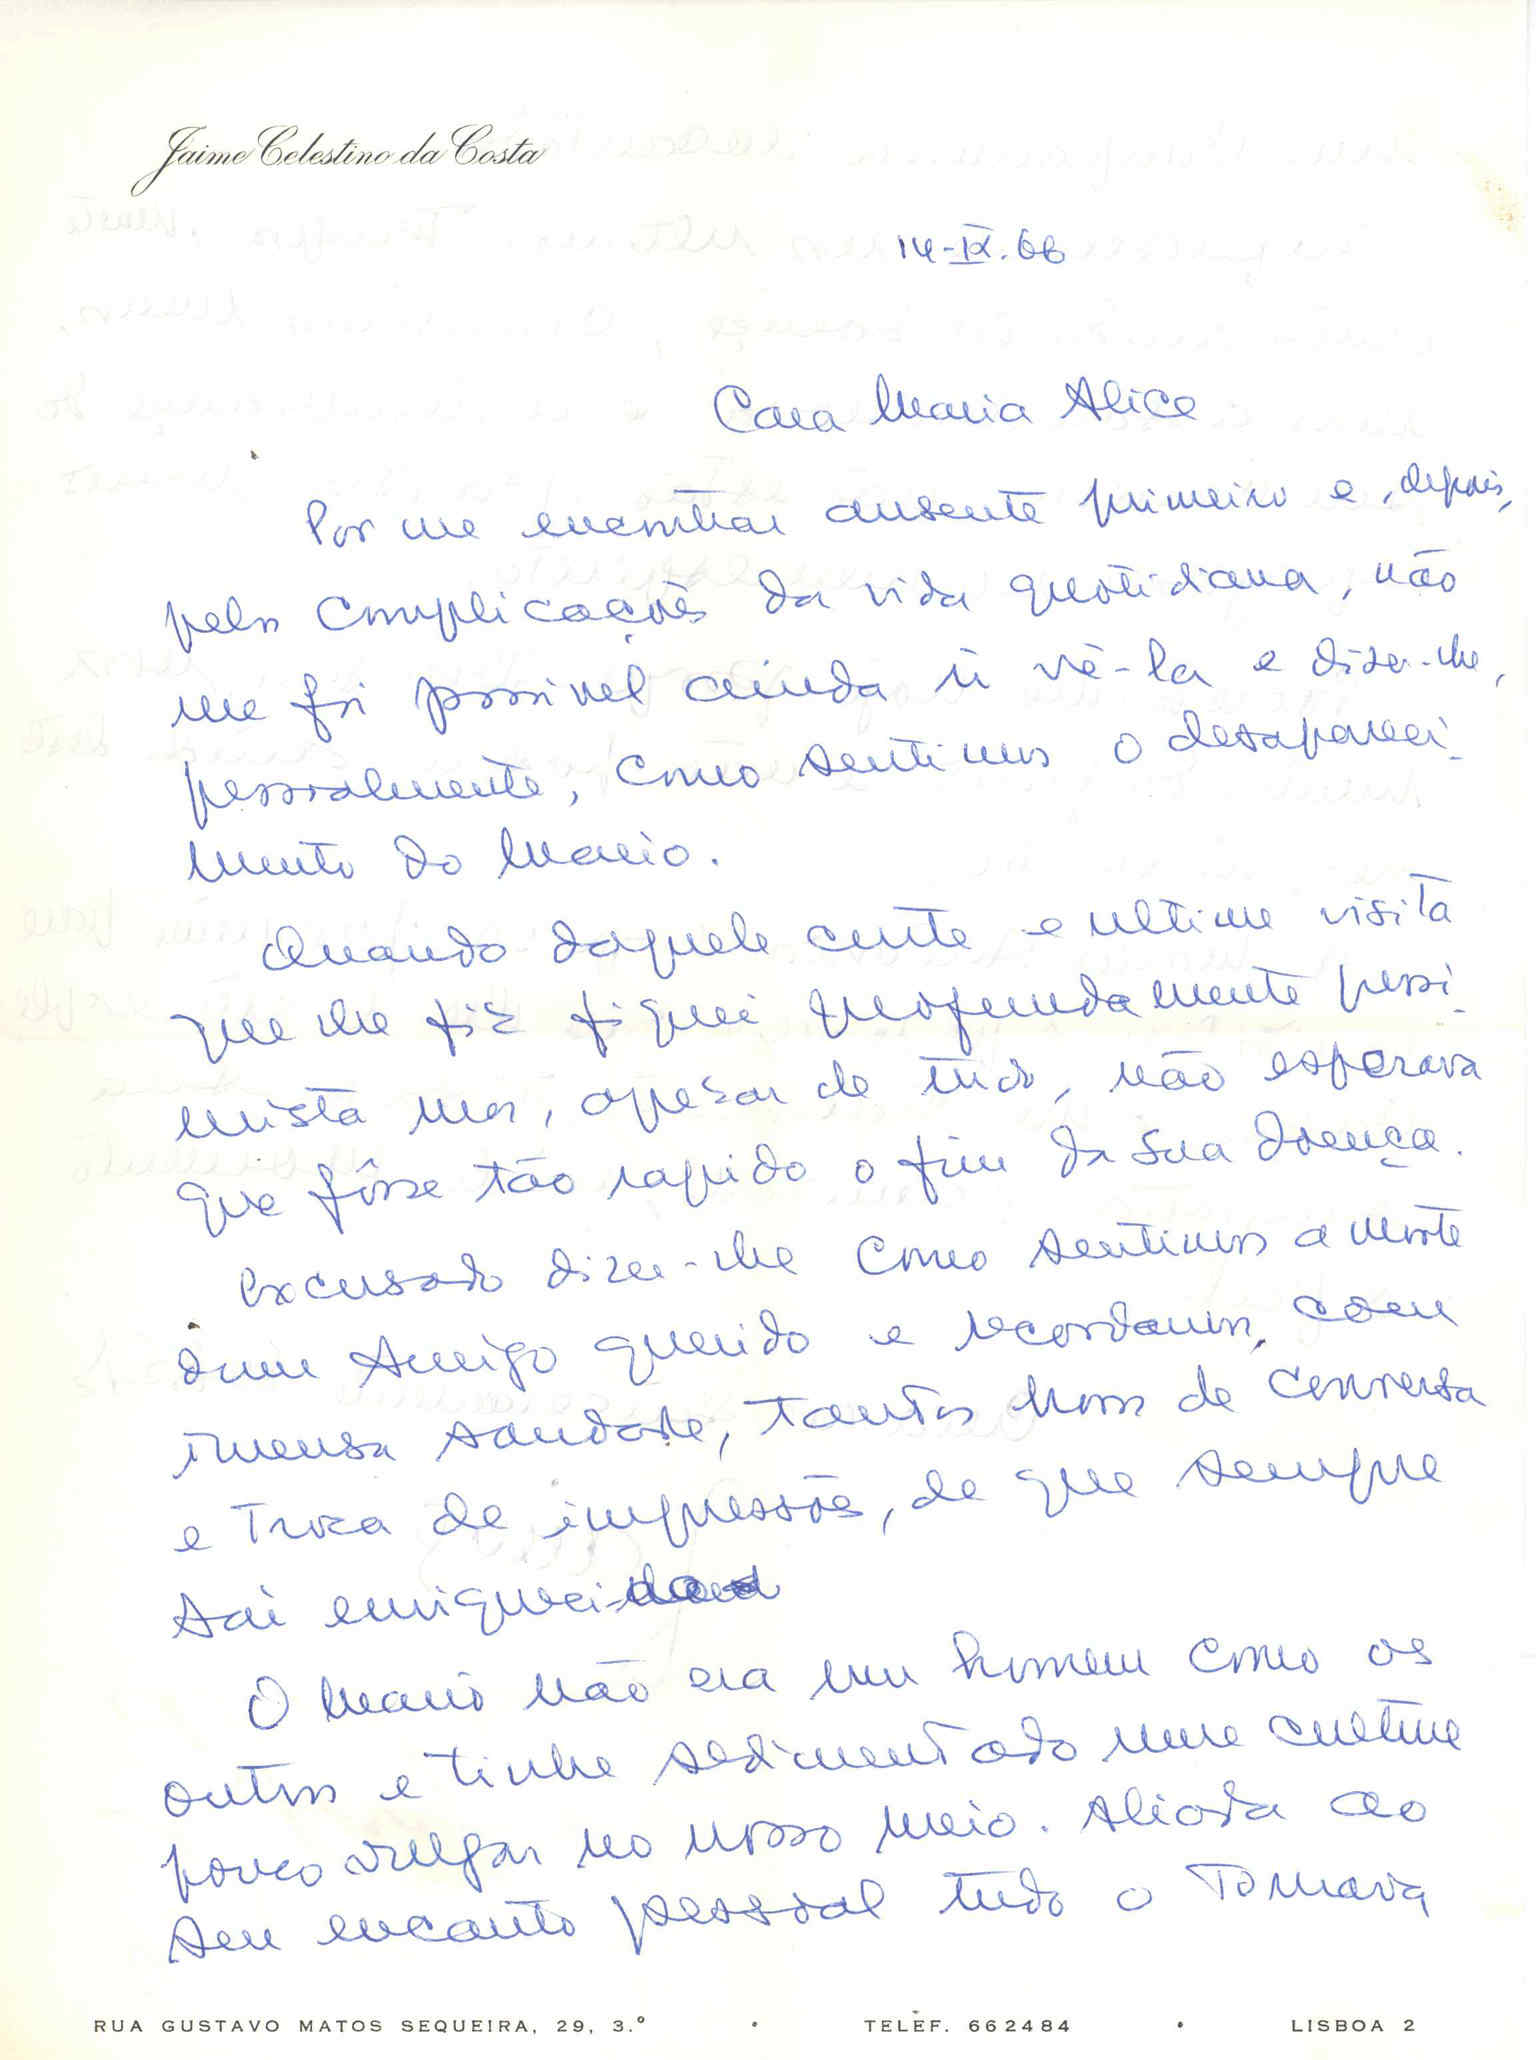 Jaime Celestino da Costa
14-IX.66
Cara Maria Alice
Por me encontrar ausente primeiro e, depois,
pelas complicações da vida quotidiana, não
me foi possivel ainda ir vê-la e dizer-lhe,
pessoalmente, como sentimos o desapareci-
mento do Mario.
Quando daquela curta e ultima visita
que lhe fiz fiquei profundamente pessi-
mista mas, apesar de tudo, não esperava
que fôsse tão rapido o fim da sua doença.
Excusado dizer-lhe como sentimos a morte
dum Amigo querido e recordamos, com
imensa saudade, tantas horas de conversa
e troca de impressões, de que sempre
sai enriquecido
O Mario não era um homem como os
outros e tinha sedimentado uma cultura
pouco vulgar no nosso meio. Aliada ao
seu encanto pessoal tudo o tornava
RUA GUSTAVO MATOS SEQUEIRA, 29, 3.º • TELEF. 662484 • LISBOA 2